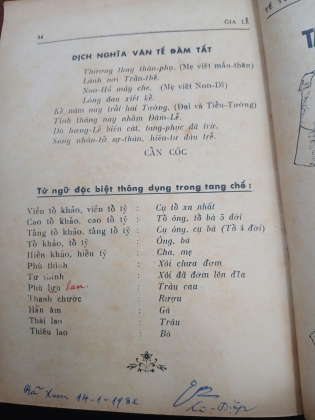 84
GIA LỄ
DỊCH NGHĨA VĂN TẾ ĐÀM TẤT
Thương thay thân-phụ, (Mẹ viết mẫu-thân)
Lánh nơi Trần-thế.
Non-Hỗ mây che, (Mẹ viết Non-Dĩ)
Lòng đau xiết kể.
Kể năm nay trải hai Tường, (Đại và Tiểu-Tường)
Tính tháng nay nhằm Đàm-Lễ.
Dù hung-Lễ biến cát, tang-phục đã trừ.
Song nhân-tử sự-thân, hiếu-tư đâu trễ.
CẨN CỐC
Từ ngữ đặc biệt thông dụng trong tang chế :
Viễn tổ khảo, viễn tổ tỷ : Cụ tổ xa nhất
Cao tổ khảo, cao tổ tỷ : Tổ ông, tổ bà 5 đời
Tằng tổ khảo, tằng tổ tỷ : Cụ ông, cụ bà (Tổ 4 đời)
Tổ khảo, tổ tỷ : Ông, bà
Hiển khảo, hiển tỷ : Cha, mẹ
Phù thinh : Xôi chưa đơm
Tư thành : Xôi đã đơm lên đĩa
Phù lưu lan : Trầu cau
Thanh chước : Rượu
Hàn âm : Gà
Thái lao : Trâu
Thiếu lao : Bò
14-1-1982
TẾ